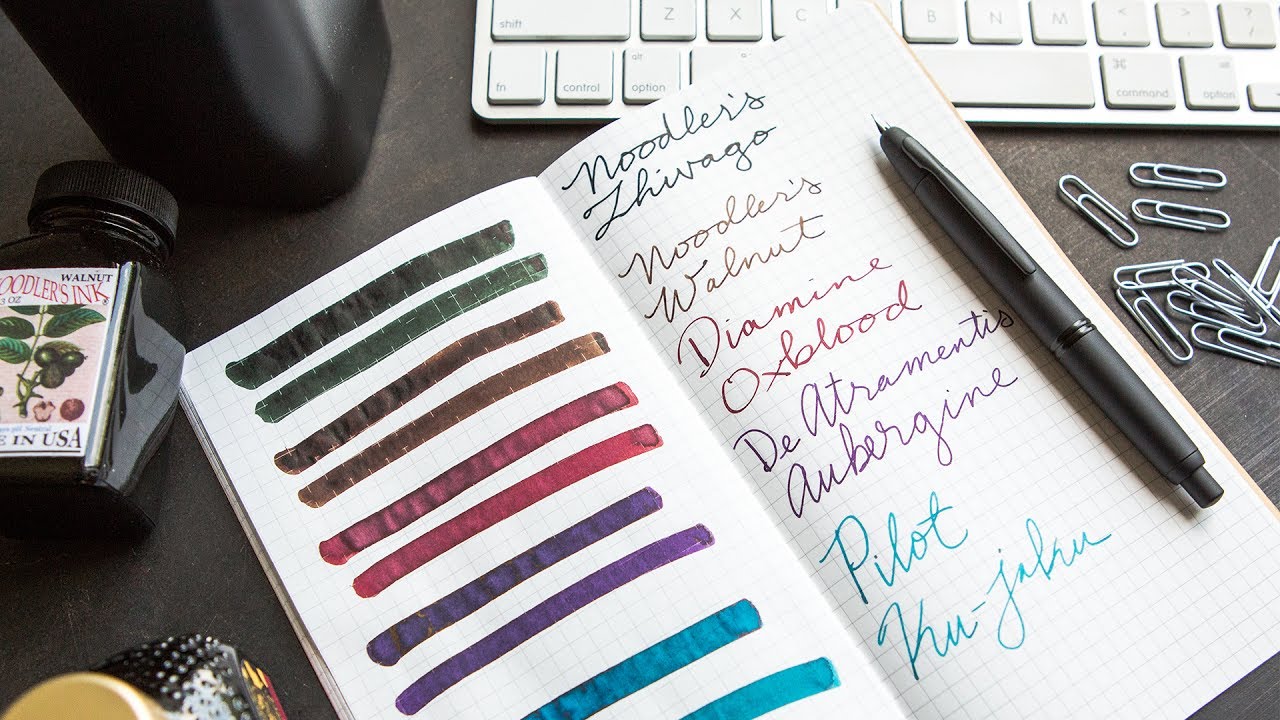 shift
Z
X
C
B
N
M
<
,
>
.
?
/
fn
control
alt
option
⌘
command
alt
option
Noodler's
Zhivago
Noodler's
Walnut
Diamine
Oxblood
De Atramentis
Aubergine
Pilot
Ku-jaku
WALNUT
NOODLER'S INK
3 OZ
pH Neutral
E IN USA